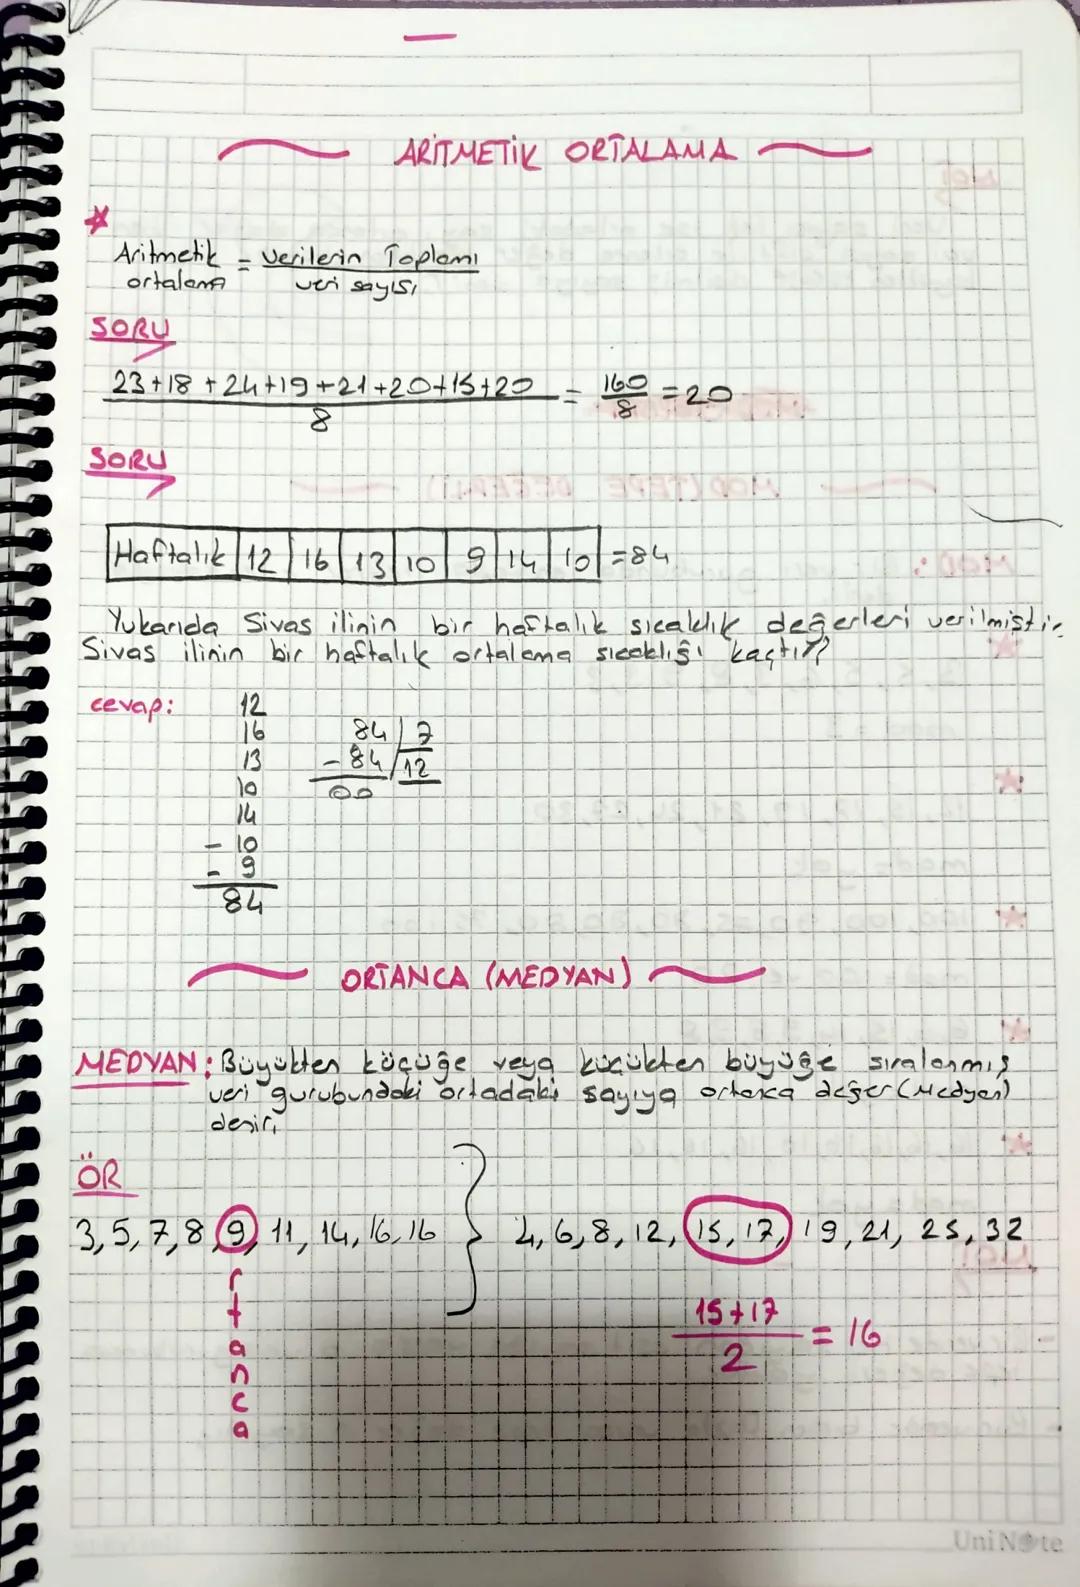 ARİTMETİK ORTALAMA
Aritmetik ortalama = Verilerin Toplamı / veri sayısı
SORU
23+18+24+19+21+20+15+20 / 8 = 160 / 8 = 20
SORU
Haftalık 12 16 13 10 9 14 10 = 84
Yukarıda Sivas ilinin bir haftalık sıcaklık değerleri verilmiştir.
Sivas ilinin bir haftalık ortalama sıcaklığı kaçtır?
cevap:
12
16
13
10
14
- 10
- 9
84
84 7
- 84 12
00
ORTANCA (MEDYAN)
MEDYAN: Büyükten küçüğe veya küçükten büyüğe sıralanmış
veri gurubundaki ortadaki sayıya ortanca değer (Medyan)
denir.
ÖR
3, 5, 7, 8, 9, 11, 14, 16, 16
ortanca
4, 6, 8, 12, 15, 17, 19, 21, 25, 32
15+17 / 2 = 16
UniNote